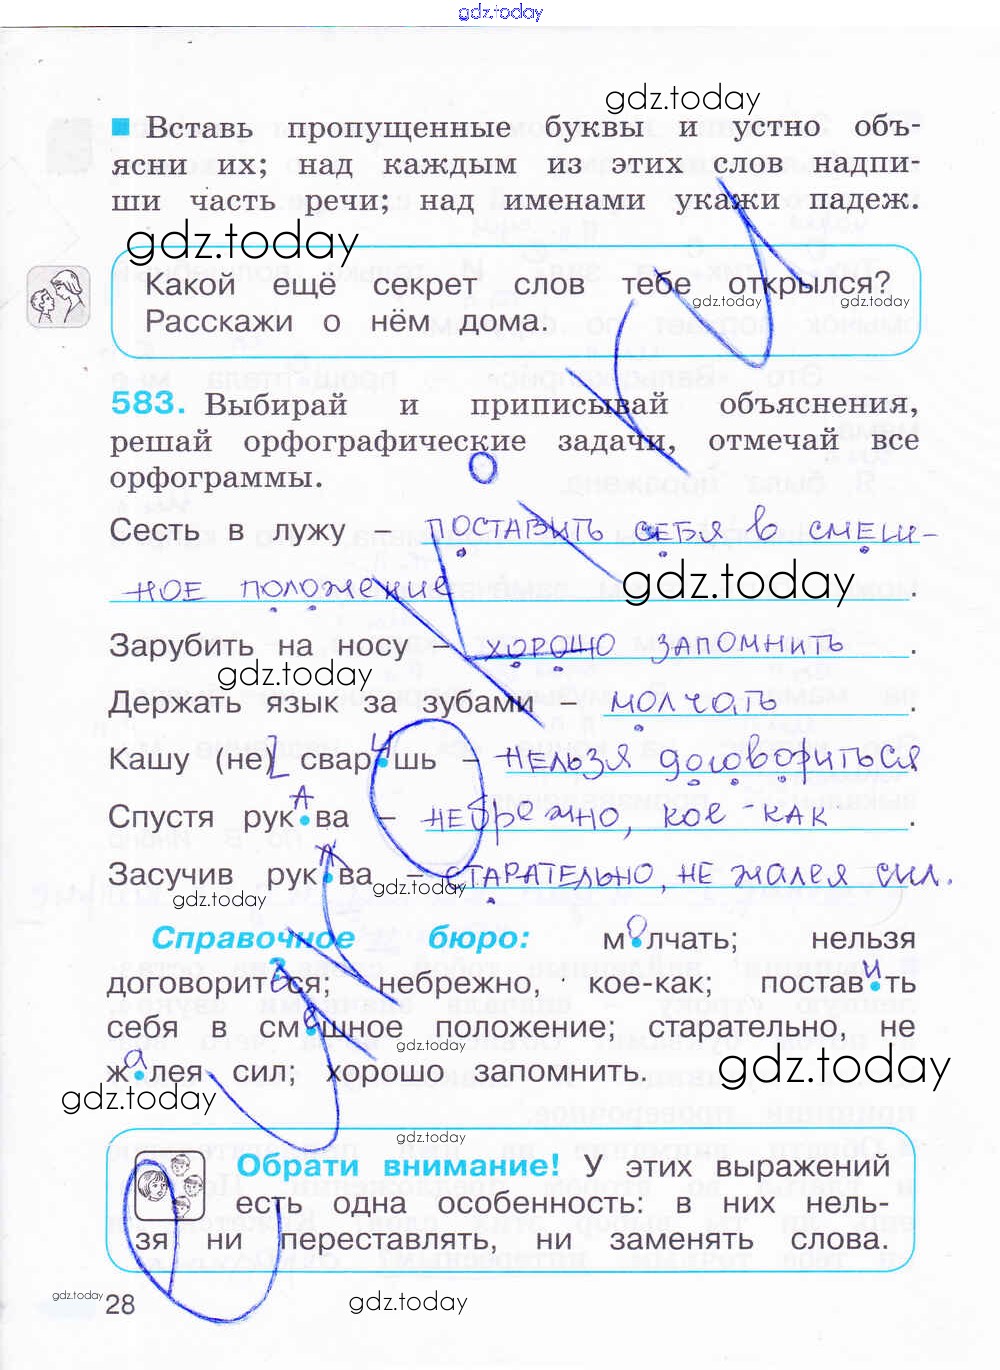 gdz.today
gdz.today
Вставь пропущенные буквы и устно объ-
ясни их; над каждым из этих слов надпи-
ши часть речи; над именами укажи падеж.
gdz.today
Какой ещё секрет слов тебе открылся?
gdz.today gdz.today
Расскажи о нём дома.
583. Выбирай и приписывай объяснения,
решай орфографические задачи, отмечай все
орфограммы.
Сесть в лужу – поставить себя в смеш-
ное положение.
gdz.today
Зарубить на носу – хорошо запомнить.
gdz.today
Держать язык за зубами – молчать.
Кашу (не) сваришь – нельзя договориться
Спустя рукава – небрежно, кое-как.
Засучив рукава – старательно, не жалея сил.
gdz.today gdz.today
Справочное бюро: молчать; нельзя
договориться; небрежно, кое-как; поставить
себя в смешное положение; старательно, не
gdz.today
жалея сил; хорошо запомнить.
gdz.today
gdz.today
gdz.today
Обрати внимание! У этих выражений
есть одна особенность: в них нель-
зя ни переставлять, ни заменять слова.
gdz.today 28 gdz.today